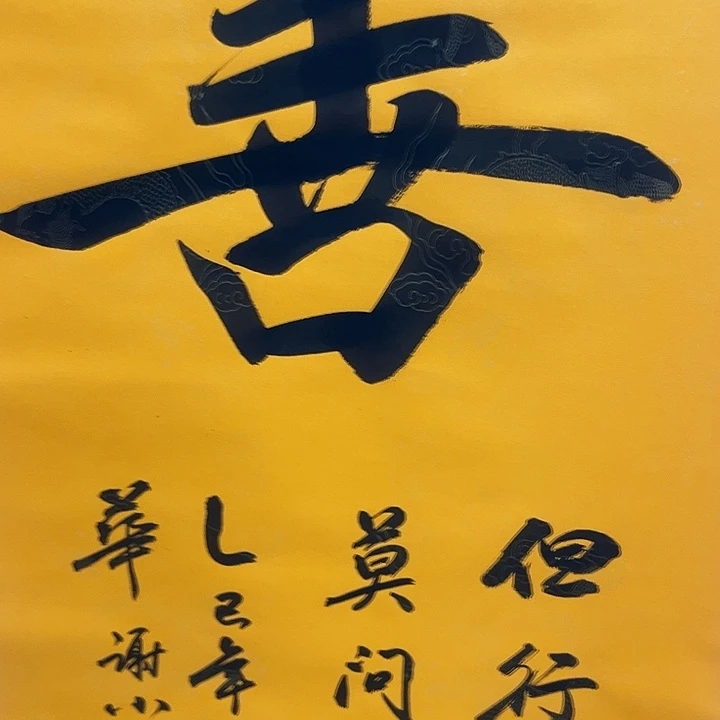 善
但行
莫问
乙巳年
華谢小